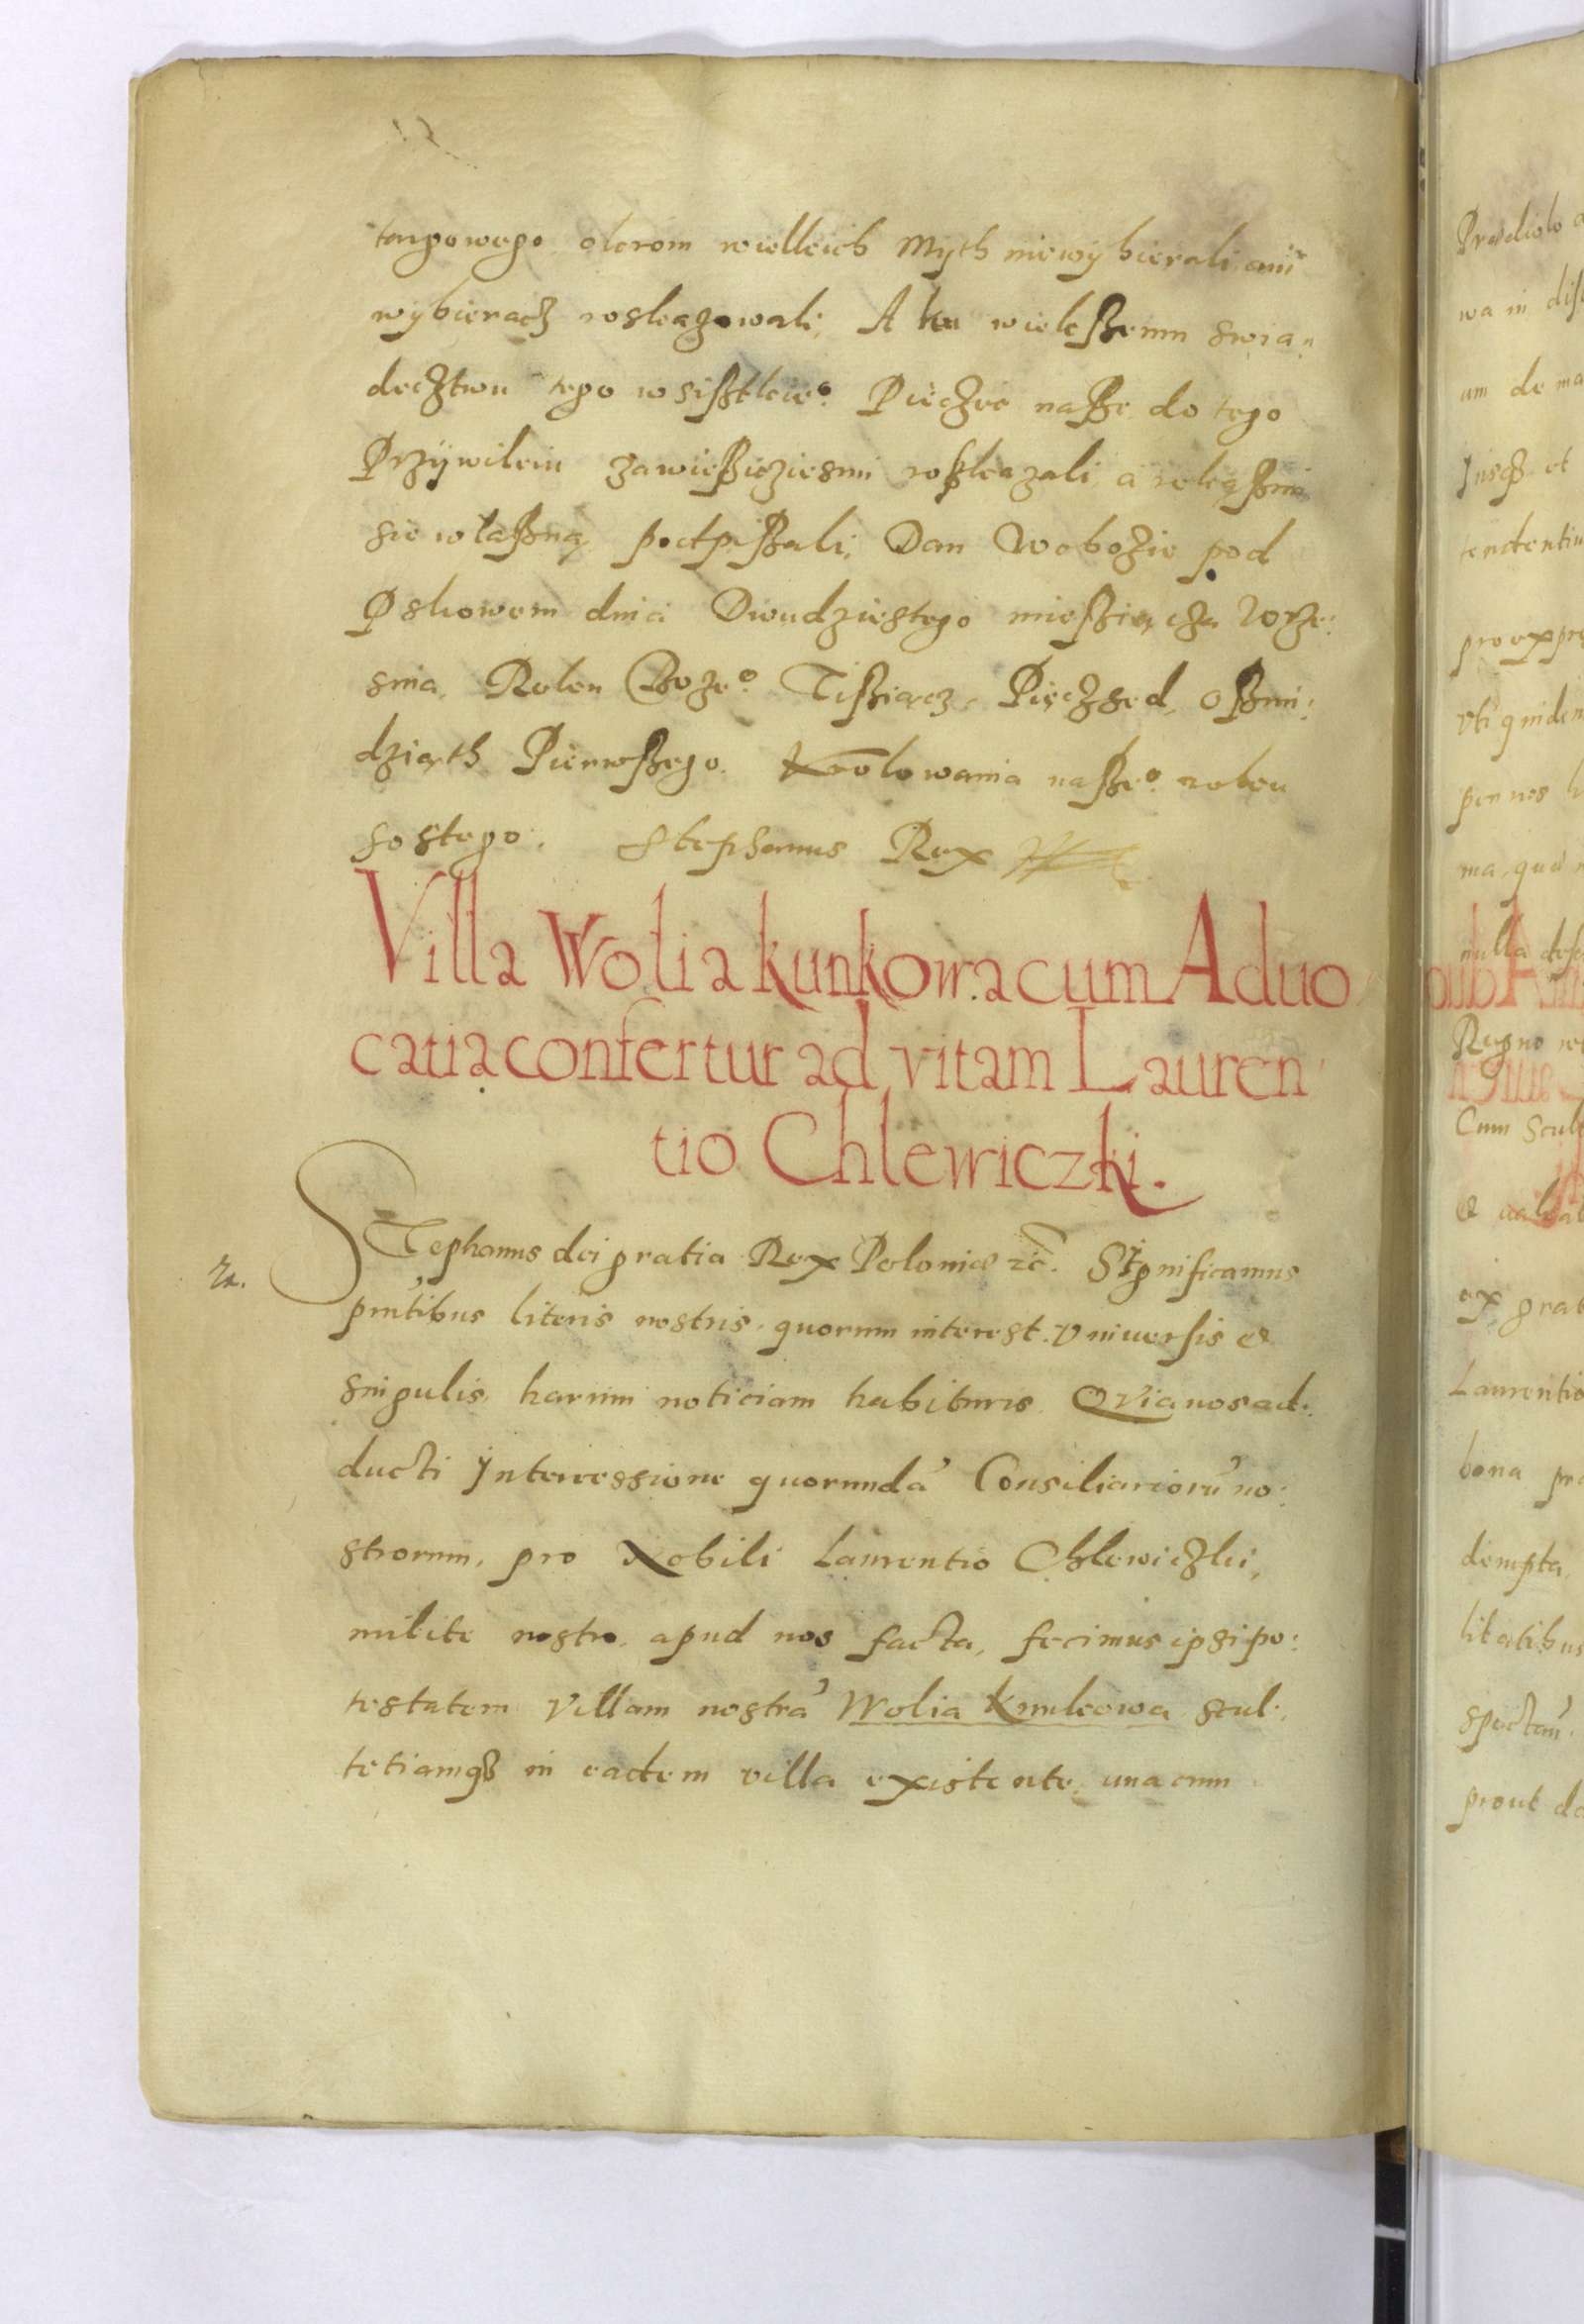 targowego okrom wielkich Myth niewybierali, ani
wybieracz roskazowali, A ku wiekßemu swia„
decztwu tego wsißtkieo Pieczec naße do tego
Przÿwileiu zawießicziesmi roßkazali, a rekąßmi
sie wlaßną podtpißali, Dan Wobozie pod
Pskowem dnia Dwudziestego mießiącza Wrze:
snia, Roku Bozeo Tißiącz, Pięczsed, oßmi:
dziąth Pierwßego. Krolowania naßeo roku
sostego. Stephanus Rex
Villa Wolia kunkowa cum Aduo
catia confertur ad vitam Lauren
tio Chlewiczki.
STephanus dei gratia Rex Poloniæ etc. Significamus
pntibus literis nostris, quorum interest. vniuersis et
singulis, harum noticiam habituris. Qvia nos ad:
ducti Intercessione quorundã Consiliariorũ no:
strorum, pro Nobili Laurentio Chlewiczki,
milite nostro, apud nos facta, fecimus ipsi po:
testatem Villam nostrã Wolia Kunkowa scul:
tetiamqз in eadem villa existente, una cum
Prædiolo
wa in
um de ma
pro expre
vti quidem
penes
ma, quæ
nulla
Regno
Cum Scul
ex grat
Laurentio
bona
dempta,
litatibus
spectan
prout